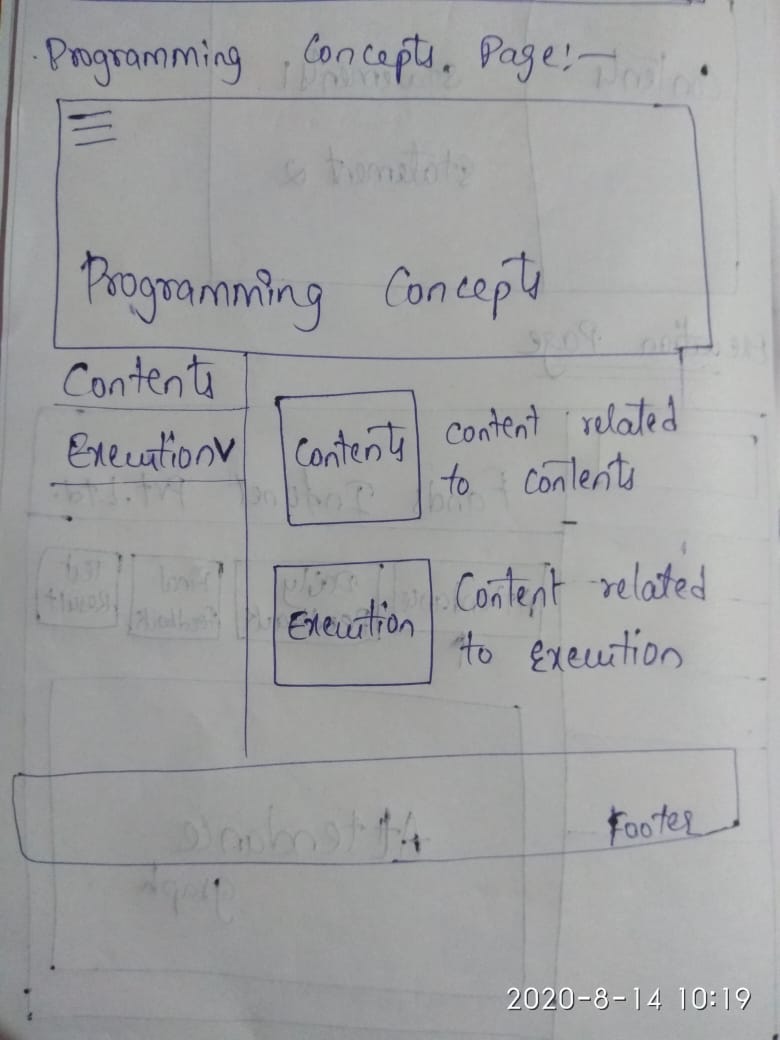 Programming Concepts Page:-
Programming Concepts
Contents
Execution
Contents
content related
to contents
Execution
Content related
to execution
Footer
2020-8-14 10:19